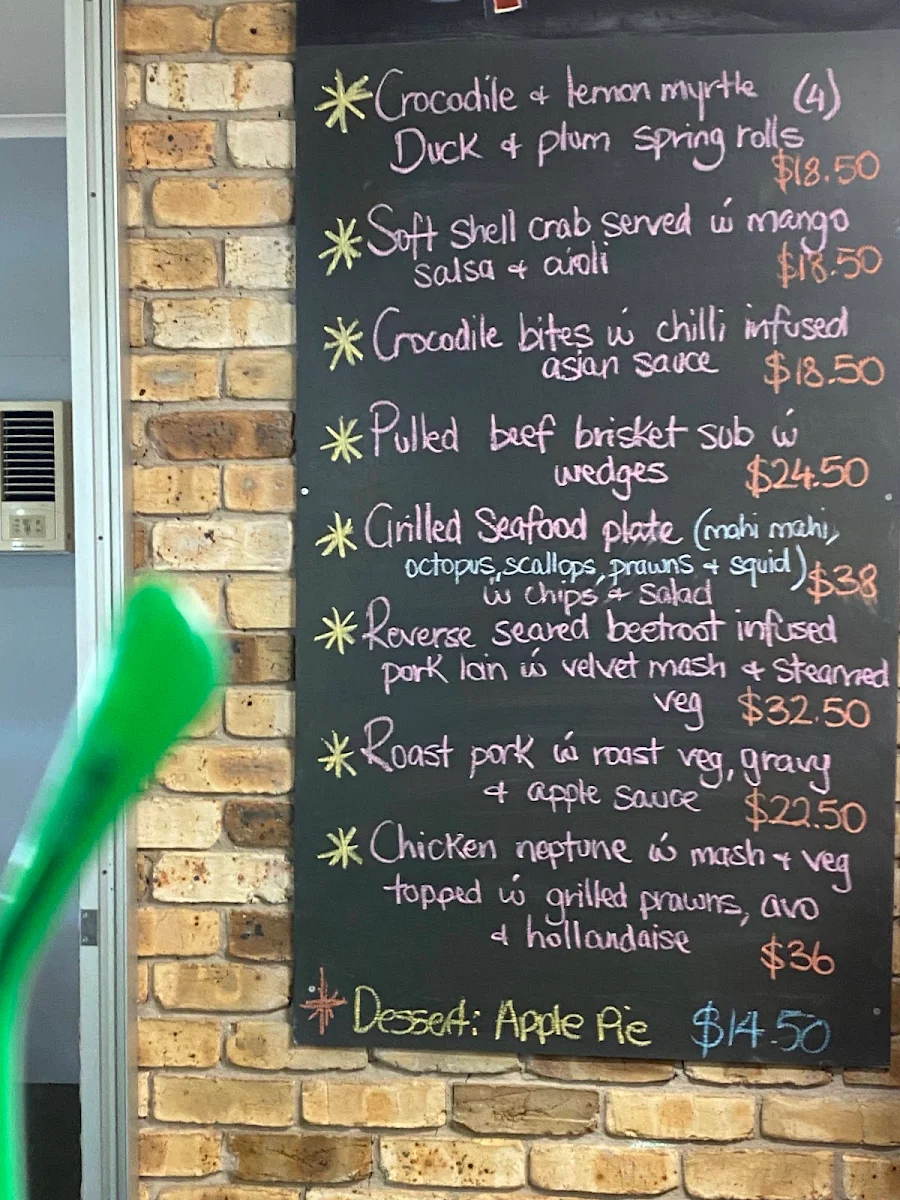 Crocodile & lemon myrtle (4)
Duck & plum spring rolls
$18.50
Soft shell crab served w mango
salsa & aioli $18.50
Crocodile bites w chilli infused
asian sauce $18.50
Pulled beef brisket sub w
wedges $24.50
Grilled Seafood plate (mahi mahi,
octopus, scallops, prawns & squid) $38
w chips & salad
Reverse seared beetroot infused
pork loin w velvet mash & steamed
veg $32.50
Roast pork w roast veg, gravy
& apple sauce $22.50
Chicken neptune w mash & veg
topped w grilled prawns, avo
& hollandaise $36
Dessert: Apple Pie $14.50